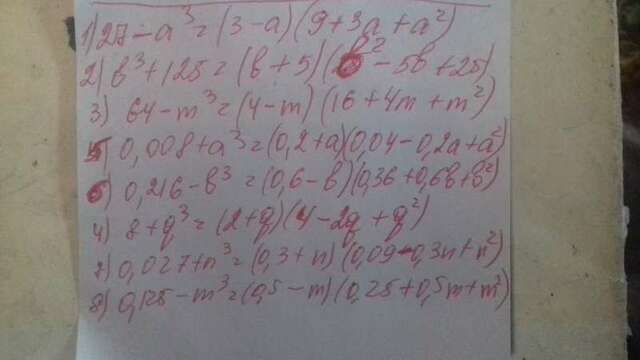 1) 27 - a³ = (3 - a)(9 + 3a + a²)
2) b³ + 125 = (b + 5)(b² - 5b + 25)
3) 64 - m³ = (4 - m)(16 + 4m + m²)
5) 0,008 + a³ = (0,2 + a)(0,04 - 0,2a + a²)
6) 0,216 - b³ = (0,6 - b)(0,36 + 0,6b + b²)
4) 8 + q³ = (2 + q)(4 - 2q + q²)
7) 0,027 + n³ = (0,3 + n)(0,09 - 0,3n + n²)
8) 0,125 - m³ = (0,5 - m)(0,25 + 0,5m + m²)